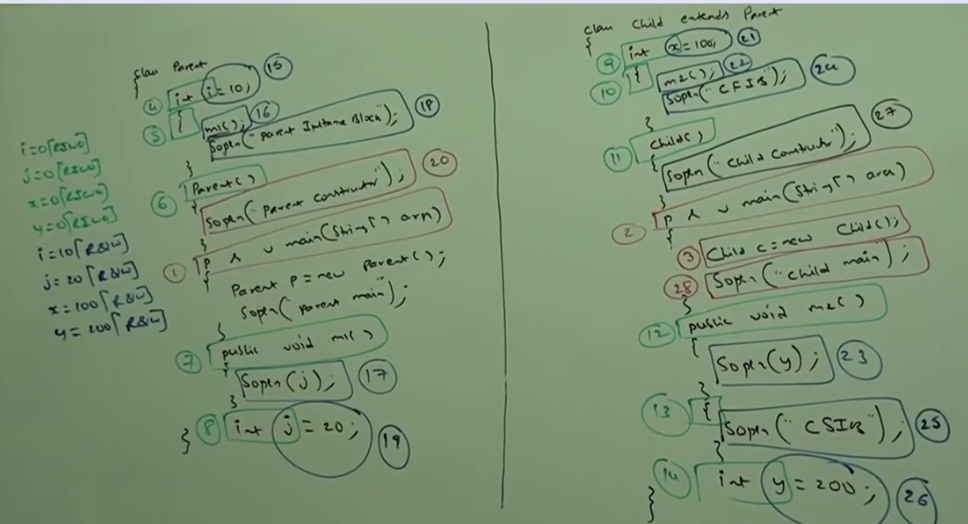 i=0[RIWO]
j=0[RIWO]
x=0[RIWO]
y=0[RIWO]
i=10[R&W]
j=20[R&W]
x=100[R&W]
y=200[R&W]
class Parent
{
④ int i=10; ⑮
⑤ {
m1(); ⑯
Sopln("parent Instance Block"); ⑱
}
⑥ Parent()
{
Sopln("parent constructor"); ⑳
}
① p s v main(String[] args)
{
Parent p=new Parent();
Sopln("parent main");
}
⑦ public void m1()
{
Sopln(j); ⑰
}
⑧ int j=20; ⑲
}
class Child extends Parent
{
⑨ int x=100; ㉑
⑩ {
m2(); ㉒
Sopln("CFIB"); ㉔
}
⑪ Child()
{
Sopln("child constructor"); ㉗
}
② p s v main(String[] args)
{
③ Child c=new Child();
㉘ Sopln("child main");
}
⑫ public void m2()
{
Sopln(y); ㉓
}
⑬ {
Sopln("CSIB"); ㉕
}
⑭ int y=200; ㉖
}